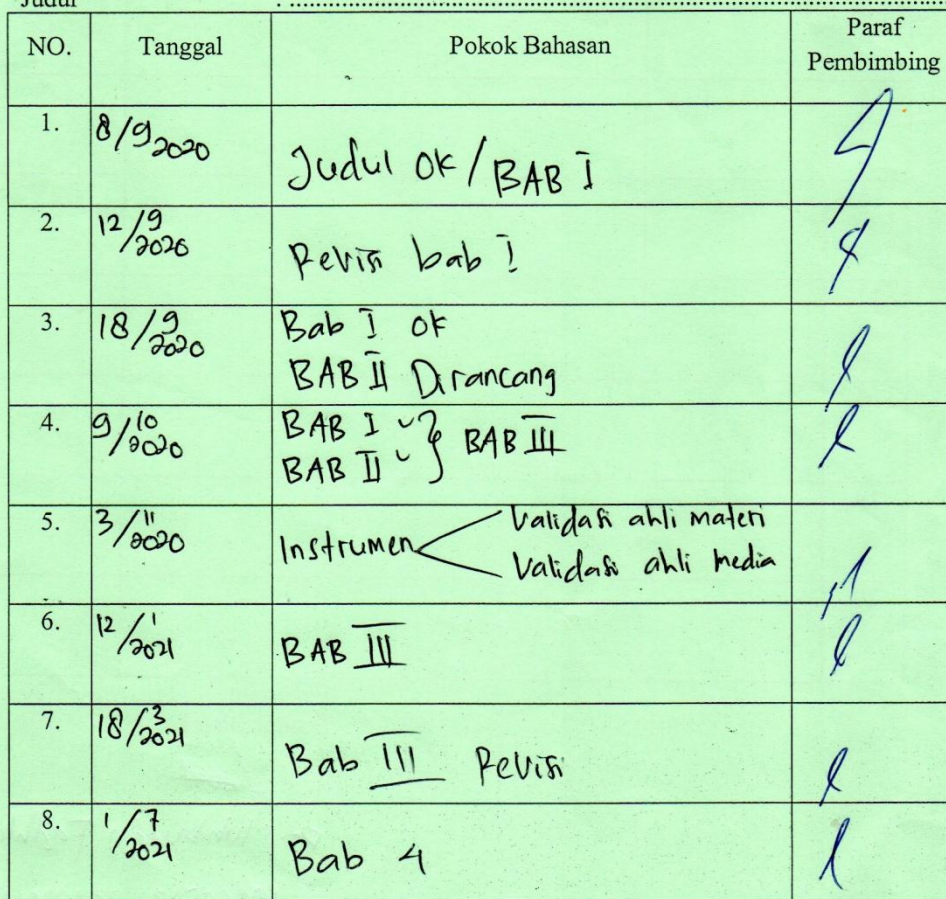 Judul : ........................
NO. Tanggal Pokok Bahasan Paraf Pembimbing
1. 8/9 2020 Judul OK / BAB I
2. 12/9 2020 Revisi bab I
3. 18/9 2020 Bab I OK
BAB II Dirancang
4. 9/10 2020 BAB I ✓ } BAB III
BAB II ✓
5. 3/11 2020 Instrumen < Validasi ahli materi
Validasi ahli media
6. 12/1 2021 BAB III
7. 18/3 2021 Bab III Revisi
8. 1/7 2021 Bab 4